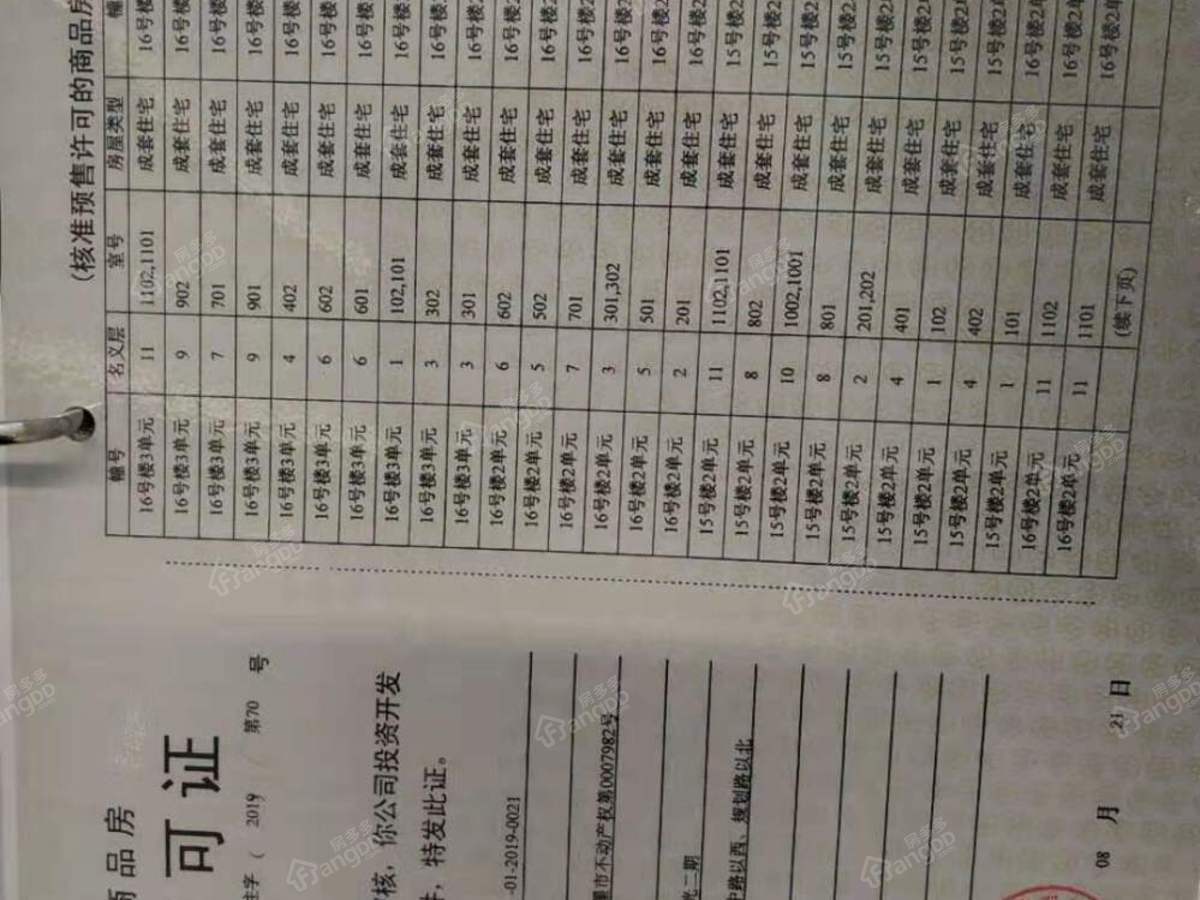 商品房
可证
( 2019 ) 第70 号
核，你公司投资开发
，特发此证。
-01-2019-0021
市不动产权第0007982号
光二期
中路以西、规划路以北
08 月 21 日
(核准预售许可的商品房
幢号 名义层 室号 房屋类型 幢
16号楼3单元 11 1102,1101 成套住宅 16号楼
16号楼3单元 9 902 成套住宅 16号楼
16号楼3单元 7 701 成套住宅 16号楼
16号楼3单元 9 901 成套住宅 16号楼
16号楼3单元 4 402 成套住宅 16号楼
16号楼3单元 6 602 成套住宅 16号楼
16号楼3单元 6 601 成套住宅 16号楼
16号楼3单元 1 102,101 成套住宅 16号楼
16号楼3单元 3 302 成套住宅 16号楼
16号楼3单元 3 301 成套住宅 16号楼2
16号楼2单元 6 602 成套住宅 16号楼2
16号楼2单元 5 502 成套住宅 16号楼2
16号楼2单元 7 701 成套住宅 16号楼2
16号楼2单元 3 301,302 成套住宅 16号楼2
16号楼2单元 5 501 成套住宅 16号楼2
16号楼2单元 2 201 成套住宅 16号楼2
15号楼2单元 11 1102,1101 成套住宅 15号楼2
15号楼2单元 8 802 成套住宅 15号楼2
15号楼2单元 10 1002,1001 成套住宅 15号楼2
15号楼2单元 8 801 成套住宅 15号楼2
15号楼2单元 2 201,202 成套住宅 15号楼2
15号楼2单元 4 401 成套住宅 15号楼2
15号楼2单元 1 102 成套住宅 15号楼2
15号楼2单元 4 402 成套住宅 15号楼2
15号楼2单元 1 101 成套住宅 16号楼2单
16号楼2单元 11 1102 成套住宅 16号楼2单
16号楼2单元 11 1101 成套住宅 16号楼2单
(续下页)
房多多
angDD